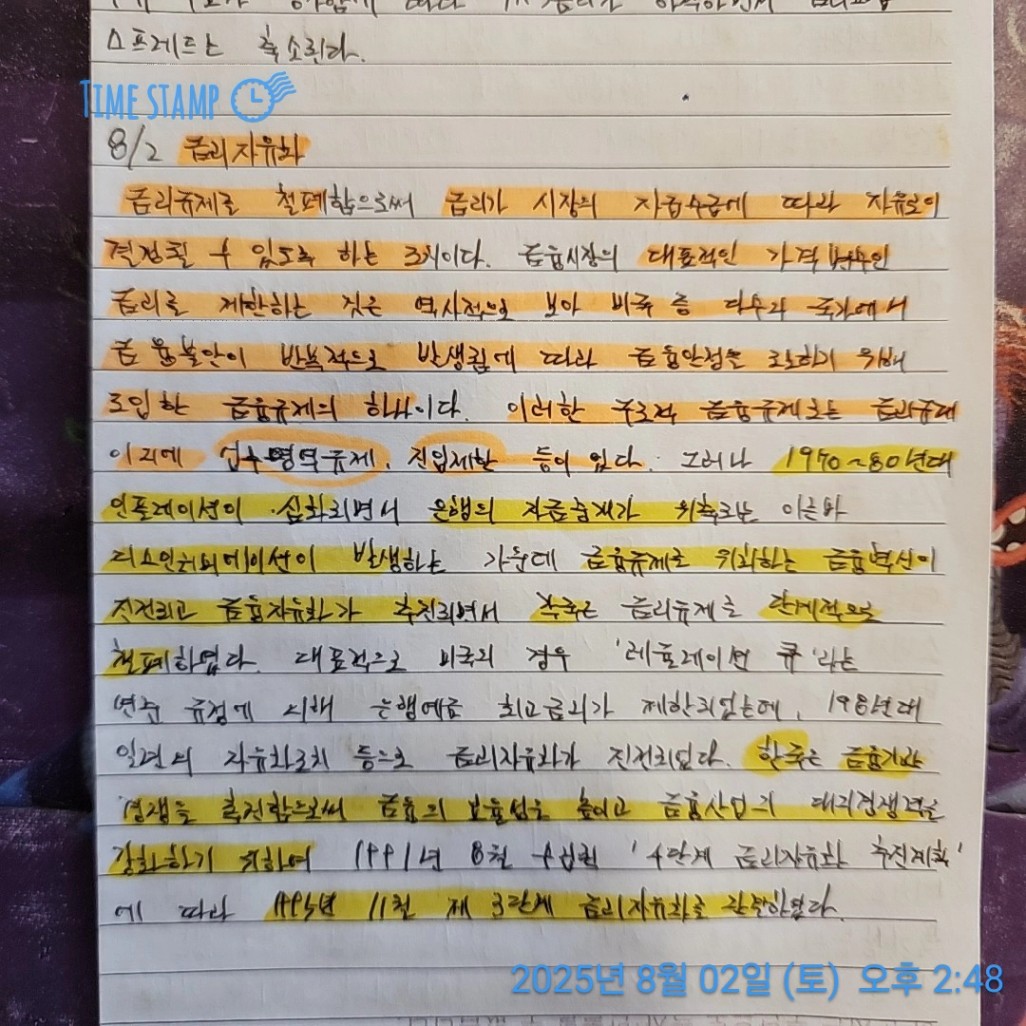 스프레드는 축소된다.
TIME STAMP
8/2 금리자유화
금리규제를 철폐함으로써 금리가 시장의 자금수급에 따라 자유로이
결정될 수 있도록 하는 조치이다. 금융시장의 대표적인 가격변수인
금리를 제한하는 것은 역사적으로 보아 미국 등 다수의 국가에서
금융불안이 반복적으로 발생됨에 따라 금융안정을 도모하기 위해
도입한 금융규제의 하나이다. 이러한 구조적 금융규제로는 금리규제
이외에 업무영역규제, 진입제한 등이 있다. 그러나 1970~80년대
인플레이션이 심화되면서 은행의 자금중개가 위축되는 이른바
디스인터미데이션이 발생하는 가운데 금융규제를 우회하는 금융혁신이
진전되고 금융자유화가 추진되면서 각국은 금리규제를 단계적으로
철폐하였다. 대표적으로 미국의 경우 '레귤레이션 큐'라는
연준 규정에 의해 은행예금 최고금리가 제한되었는데, 198년대
일련의 자유화조치 등으로 금리자유화가 진전되었다. 한국은 금융기관
경쟁을 촉진함으로써 금융의 효율성을 높이고 금융산업의 대외경쟁력을
강화하기 위하여 1991년 8월 수립된 '4단계 금리자유화 추진계획'
에 따라 1995년 11월 제 3단계 금리자유화를 완료하였다.
2025년 8월 02일 (토) 오후 2:48